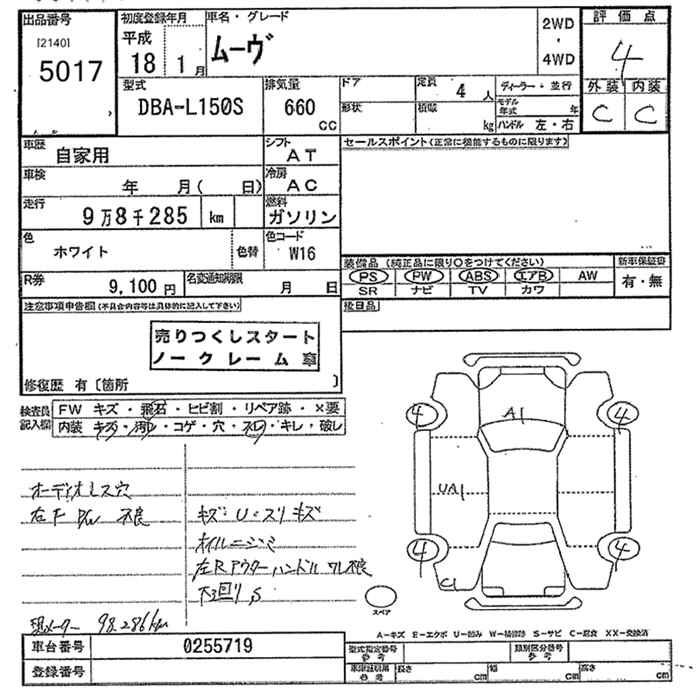 出品番号 初度登録年月 車名・グレード 評価点
[2140] 平成 ムーヴ 2WD 4
5017 18 1月 ・ 4WD
外装 内装
C C
型式 排気量 ドア 定員 4人 ディーラー・並行
DBA-L150S 660 CC 形状 積載 kg モデル年式 年
ハンドル 左・右
車歴 自家用 シフト AT セールスポイント(正常に機能するものに限ります)
車検 年 月( 日) 冷房 AC
走行 9万8千285 km 燃料 ガソリン
色 ホワイト 色替 色コード W16
装備品(純正品に限り○をつけてください) 新車保証書
PS PW ABS エアB AW 有・無
SR ナビ TV カワ
R券 9,100円 名変通知期限 月 日
注意事項申告欄(不具合内容等は具体的に記入して下さい)
売りつくしスタート
ノークレーム車
修復歴 有〔箇所 〕
検査員 FW キズ・飛石・ヒビ割・リペア跡・×要
記入欄 内装 キズ・汚レ・コゲ・穴・スレ・キレ・破レ
4 A1 4
UA1
4 4
C1
オーディオレス穴
右F P/W 不良 キズ:U・スリキズ
オイルニジミ
左Rアウターハンドルワレ不良
下回りS
スペア
現メーター 98,286km
A-キズ E-エクボ U-凹み W-補修跡 S-サビ C-腐食 XX-交換済
車台番号 0255719 型式指定番号 参考 類別区分番号 参考
登録番号 長さ cm 幅 cm 高さ cm